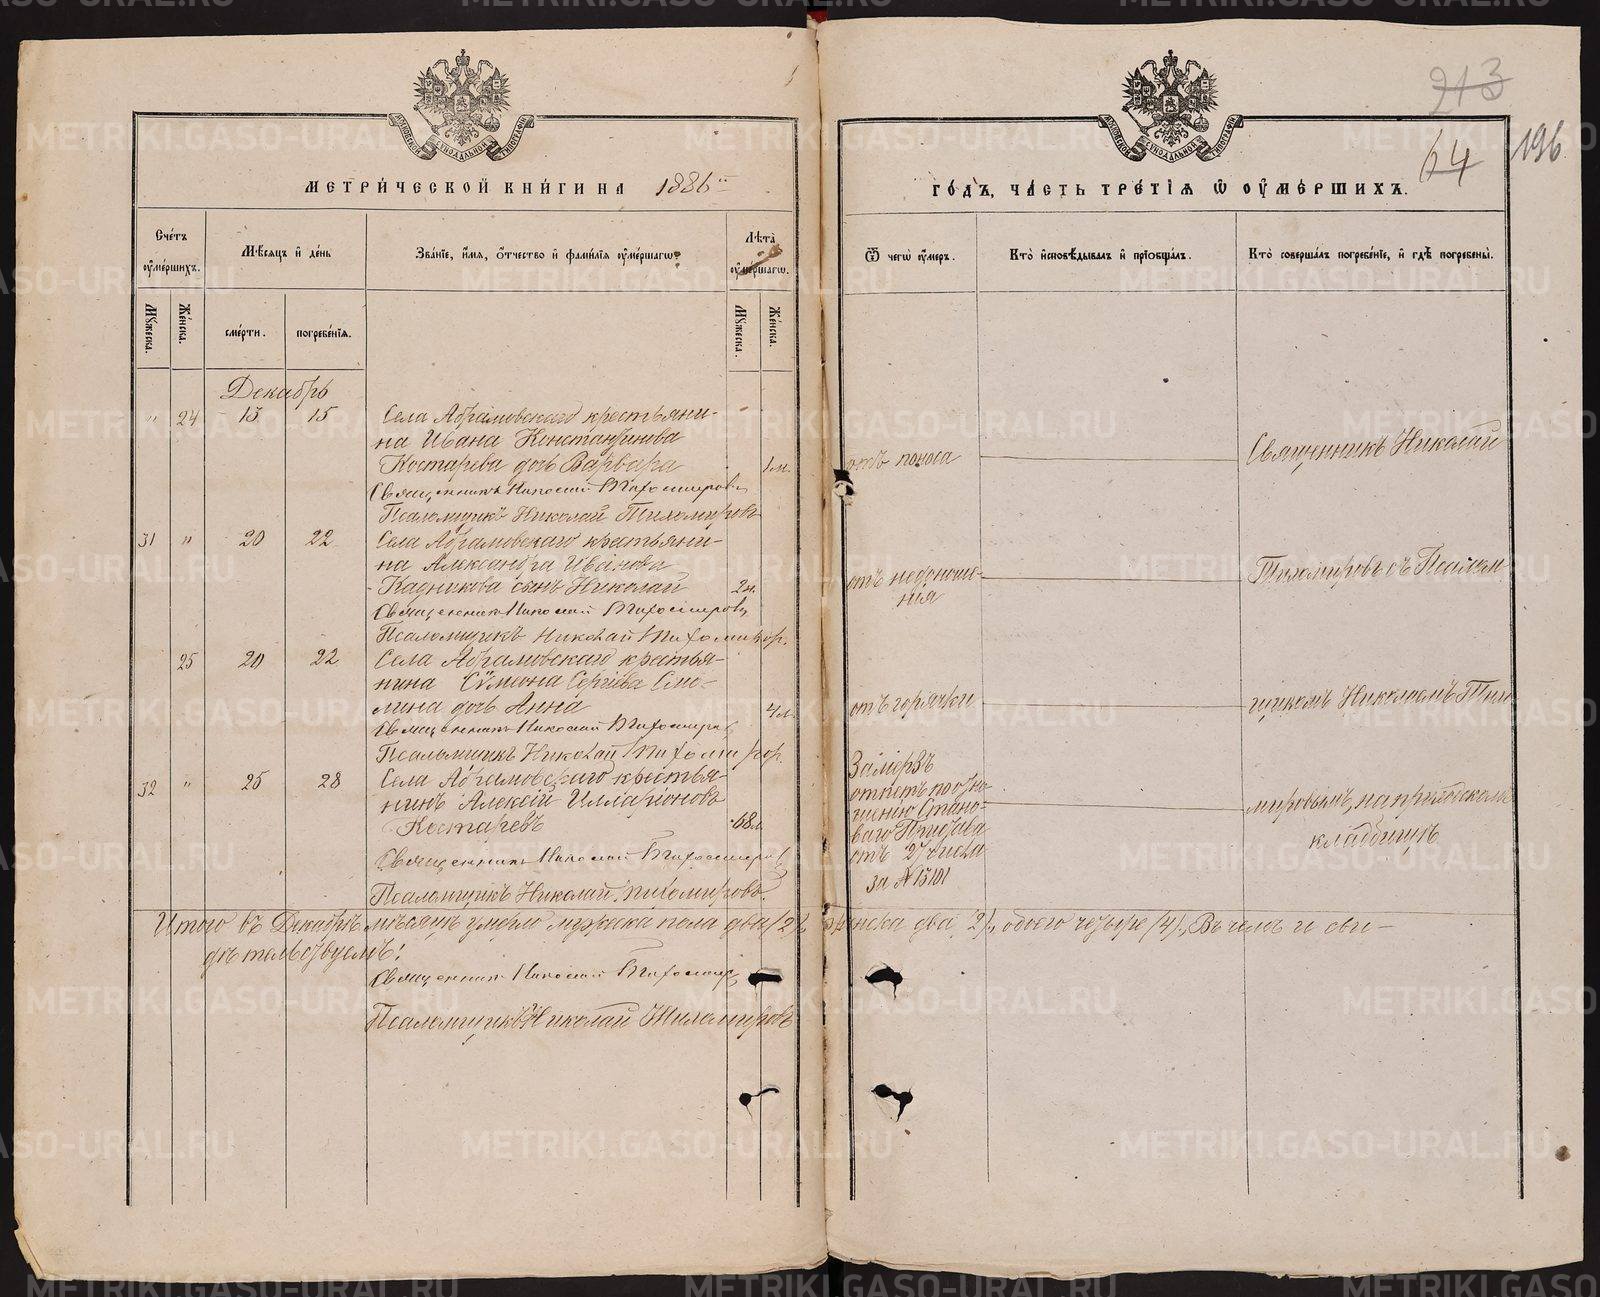 213
64
196
МОСКОВСКОЙ СѴНОДАЛЬНОЙ ТИПОГРАФІИ
МОСКОВСКОЙ СѴНОДАЛЬНОЙ ТИПОГРАФІИ
МЕТРИ́ЧЕСКОЙ КНИ́ГИ НА 1886
ГО́ДЪ, ЧА́СТЬ ТРЕ́ТІЯ Ѡ ОУМЕ́РШИХЪ.
Сче́тъ оумершихъ.
Мѣсяцъ и день
Зва́ніе, и́мя, о́тчество и фами́лія оуме́ршагѡ.
Лѣта̀ оуме́ршагѡ.
Ѿ чегѡ̀ оу́меръ.
Кто̀ исповѣ́дывалъ и пріобща́лъ.
Кто̀ соверша́лъ погребе́ніе, и гдѣ̀ погребены̀.
Мꙋ́жеска.
Же́нска.
сме́рти.
погребе́нія.
Мꙋ́жеска.
Же́нска.
Декабрь
" 24 13 15 Села Абрамовскаго крестьяни-
на Ивана Константинова
Костарева дочь Варвара 1 м. отъ поноса Священникъ Николай
Священникъ Николай Тихомировъ
Псаломщикъ Николай Тихомировъ
31 " 20 22 Села Абрамовскаго крестьяни-
на Александра Иванова
Кадникова сынъ Николай 2 н. отъ недоноше-
ния Тихомировъ съ Псалом
Священникъ Николай Тихомировъ
Псаломщикъ Николай Тихомировъ.
25 20 22 Села Абрамовскаго крестья-
нина Сѵмиона Сергиева Смо-
лина дочь Анна 4 л. отъ горячки щикомъ Николаемъ Тихо
Священникъ Николай Тихомировъ
Псаломщикъ Николай Тихомировъ.
32 " 25 28 Села Абрамовскаго крестья-
нинъ Алексѣй Илларіоновъ
Костаревъ 68 л.
Замерзъ
отпѣтъ по отно-
шению Стано-
ваго Пристава
отъ 27 числа
за № 15101
мировымъ, на приходскомъ
кладбищѣ
Священникъ Николай Тихомировъ
Псаломщикъ Николай Тихомировъ.
Итого въ Декабрѣ мѣсяцѣ умерло мужеска пола два /2/, женска два /2/, обоего четыре /4/. Въ чемъ и сви-
дѣтельствуемъ:
Священникъ Николай Тихомировъ
Псаломщикъ Николай Тихомировъ
METRIKI.GASO-URAL.RU